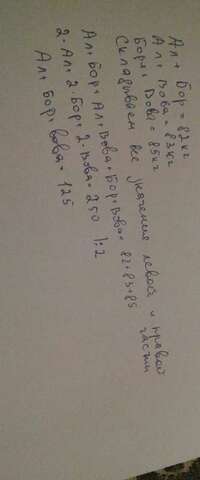 Ал + Бор = 82кг
Ал + Вова = 83кг
Бор + Вова = 85кг
Складываем все значения левой и правой части
Ал + Бор + Ал + Вова + Бор + Вова = 82 + 83 + 85
2·Ал + 2·Бор + 2·Вова = 250 |:2
Ал + Бор + Вова = 125